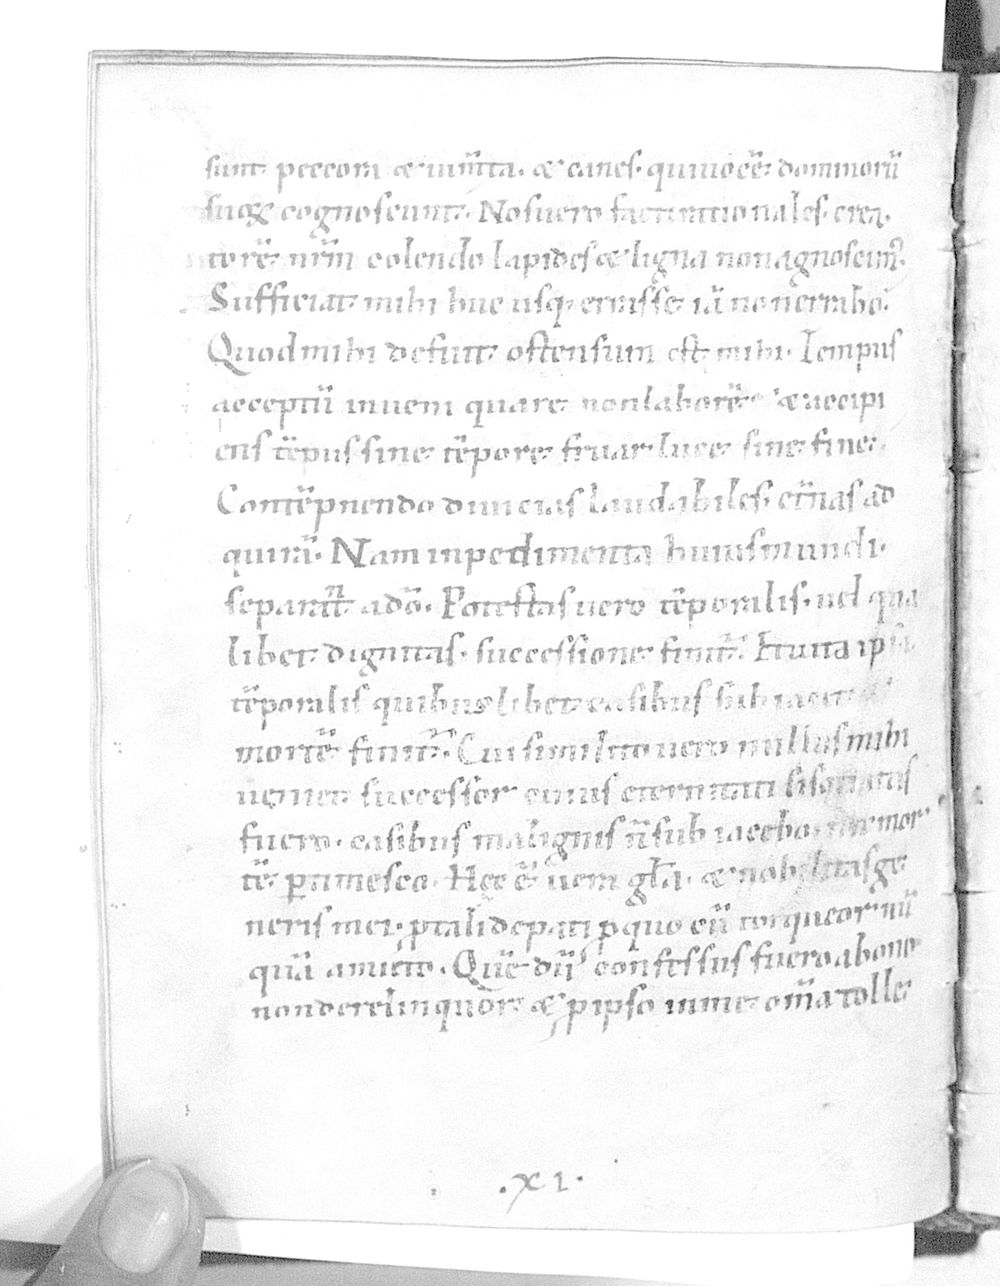 sunt peccora & ium̅ta. & canes. qui uocē dominorū
suoꝝ cognoscunt. Nos uero facti rationales. crea
torē nr̅m colendo lapides & ligna non agnoscim᷒.
Sufficiat mihi huc usq. errasse iā non errabo.
Quod mihi defuit ostensum est mihi. Tempus
acceptū inueni quare non laborē & accipi
ens tēpus sine tēpore fruar luce sine fine.
Contēpnendo diuicias laudabiles. et̅nas ad
quirā. Nam inpedimenta huius mundi.
separant̅ a dō. Potestas uero tēporalis. uel qua
libet dignitas. successione finit̅. Et uita ipsa
tēporalis quibus libet casibus subiacet
mortē finit̅. Cui similito uero nullus mihi
ueniet successor cuius eternitati si sotiatus
fuero. casibus malignis n̅ subiacebo. nec mor
tē ꝑtimesco. Hęc ē uera gl̅a. & nobilitas ge
neris mei. ꝓ tali de pati ꝓ quo cū torqueor nū
quā amitto. Quē dū confessus fuero ab one
non derelinquor. & ꝓ ipso in me om̅a tolle
.XI.